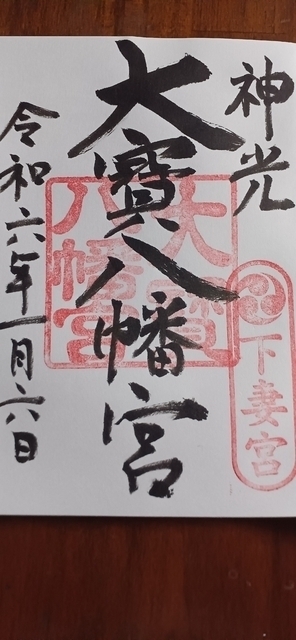 神光
下妻宮
大寳八幡宮
大寳八幡宮
令和六年一月六日